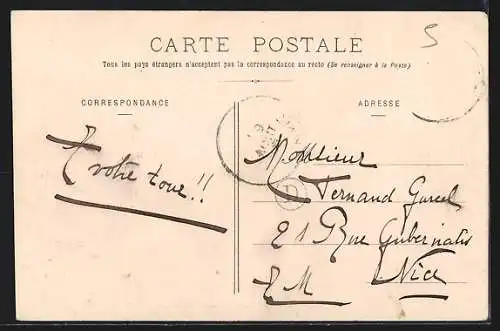 5
CARTE POSTALE
Tous les pays étrangers n'acceptent pas la correspondance au recto (Se renseigner à la Poste)
CORRESPONDANCE
ADRESSE
A votre tour!!
Monsieur
D
Fernand
21 Rue Gubernatis
Nice
E M